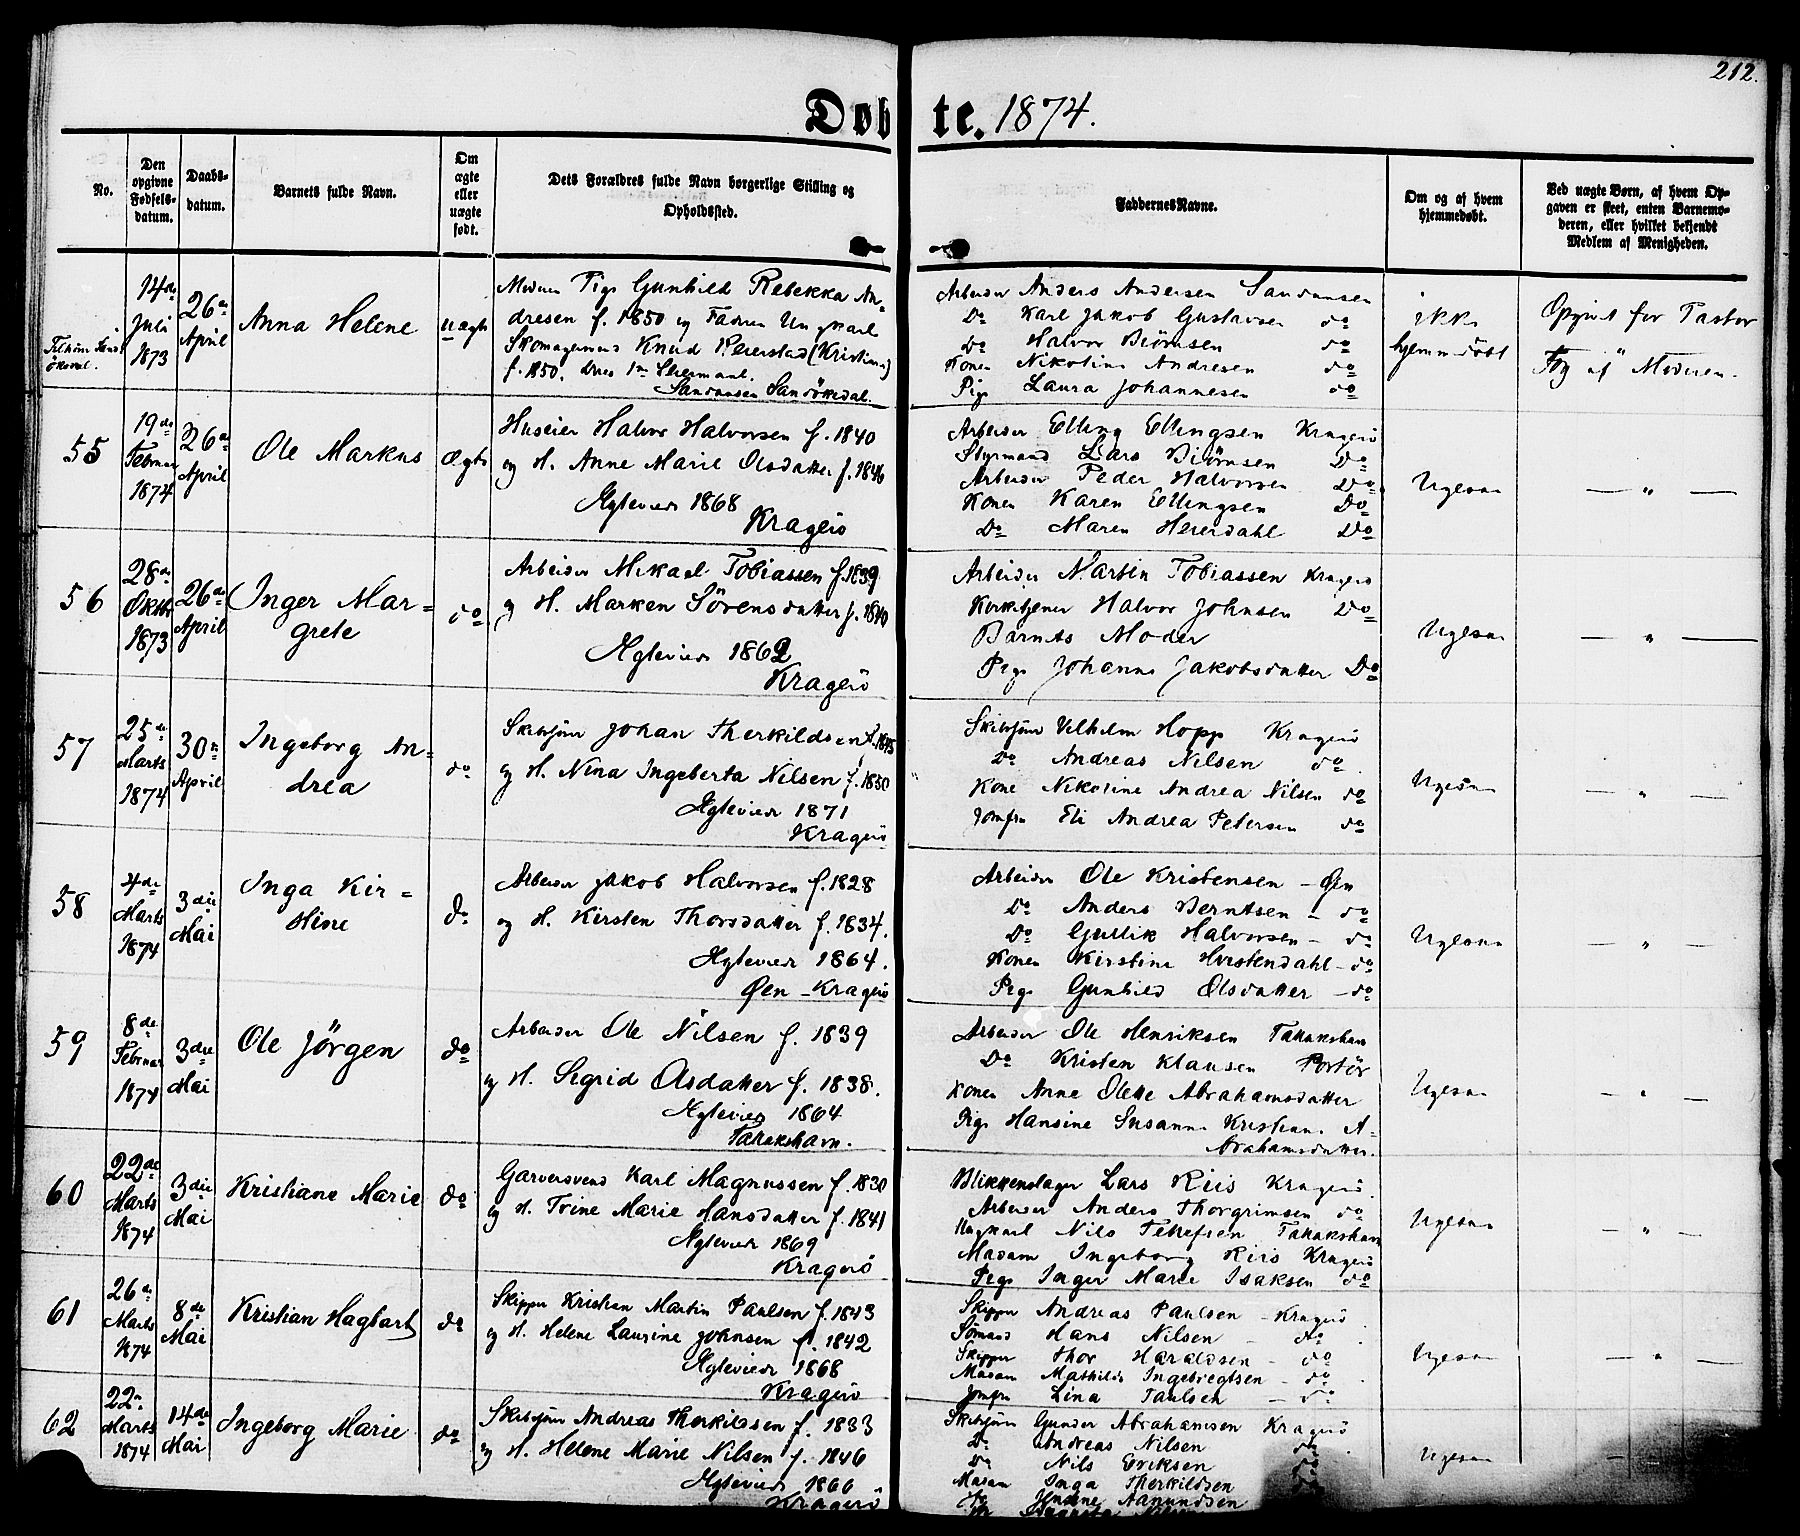 212.
Døbte. 1874.
No.
Den opgivne Fødsels-datum.
Daabs-datum.
Barnets fulde Navn.
Om ægte eller uægte født.
Dets Forældres fulde Navn borgerlige Stilling og Opholdssted.
Faddernes Navne.
Om og af hvem hjemmedøbt.
Ved uægte Børn, af hvem Opgaven er skeet, enten Barnemoderen, eller hvilket bekjendt Medlem af Menigheden.
14de Juli 1873
26de April
Anna Helene
uægte
Moderen Pige Gunhild Rebekka An-
dresen f. 1850 og Faderen Ungkarl
Knud
f. 1850.
Arbeider Anders Andersen
Do Karl Jakob Gustavsen do
Do Halvor Biörnsen do
Konen Nikoline Andresen do
Pige Laura Johannesen do
ikke
hjemmedøbt
for Pastor
af Moderen.
55
19de Februar 1874
26de April
Ole Markus
Ægte
Huseier Halvor Halvorsen f. 1840
og H. Anne Marie Olsdatter f. 1846
Ægteviede 1868
Kragerö
Arbeider Elling Ellingsen Kragerö
Styrmand Lars Biörnsen Do
Arbeider Peder Halvorsen Do
Konen Karen Ellingsen Do
Do Maren Heierdahl Do
— " —
56
28de Oktbr 1873
26de April
Inger Mar=
grete
do
Arbeider Mikael Tobiassen f. 1839
og H. Maren Sörensdatter f. 1840
Ægteviede 1862
Kragerö
Arbeider Martin Tobiassen Kragerö
Kirketjener Halvor Johnsen Do
Barnets Moder
Pige Johanne Jakobsdatter Do
— " —
57
25de Marts 1874
30te April
Ingeborg An-
drea
do
Skibstjmr Johan Therkildsen f. 1845
og H. Nina Ingeberta Nilsen f. 1850
Ægteviede 1871
Kragerö
Skibstjmr Vilhelm Hopp Kragerö
Do Andreas Nilsen do
Kone Nikoline Andrea Nilsen do
Jomfru Eli Andrea Petersen do
— " —
58
4de Marts 1874
3die Mai
Inga Kir=
stine
do
Arbeider Jakob Halvorsen f. 1828
og H. Kirsten Thorsdatter f. 1834.
Ægteviede 1864.
Øen - Kragerö
Arbeider Ole Kristensen - Øen
Do Anders Berntsen - do
Do Gullik Halvorsen - do
Konen Kirstine Hvistendahl - do
Pige Gunhild Olsdatter - do
— " —
59
8de Februar 1874
3die Mai
Ole Jörgen
do
Arbeider Ole Nilsen f. 1839
og H. Sigrid Olsdatter f. 1838.
Ægteviede 1864
Arbeider Ole Henriksen
Do Kristen Klausen Portör
Konen Anne Olette Abrahamsdatter
Pige Hansine Susanne Kristiane A-
Abrahamsdatter.
— " —
60
22de Marts 1874
3die Mai
Kristiane Marie
do
Garversvend Karl Magnussen f. 1830
og H. Trine Marie Hansdatter f. 1841
Ægteviede 1869
Kragerö
Blikkenslager Lars Riis Kragerö
Arbeider Anders Thorgrimsen do
Ungkarl Nils Tellefsen
Madam Ingeborg Riis Kragerö
Pige Inger Marie Isaksen do
— " —
61
26de Marts 1874
8de Mai
Kristian Hagbart
do
Skipper Kristian Martin Paulsen f. 1843
og H. Helene Laurine Johnsen f. 1842
Ægteviede 1868
Kragerö
Skipper Andreas Paulsen - Kragerö
Sömand Hans Nilsen - do
Skipper Thor Haraldsen - do
Madam Mathilde Ingebregtsen - do
Jomfru Lina Paulsen - do
— " —
62
22de Marts 1874
14de Mai
Ingeborg Marie
do
Skibstjmr Andreas Therkildsen f. 1833
og H. Helene Marie Nilsen f. 1846
Ægteviede 1866
Kragerö
Skibstjmr Gunder Abrahamsen Kragerö
Do Andreas Nilsen do
Do Nils Eriksen
Madam Inga Therkildsen
Aanundsen